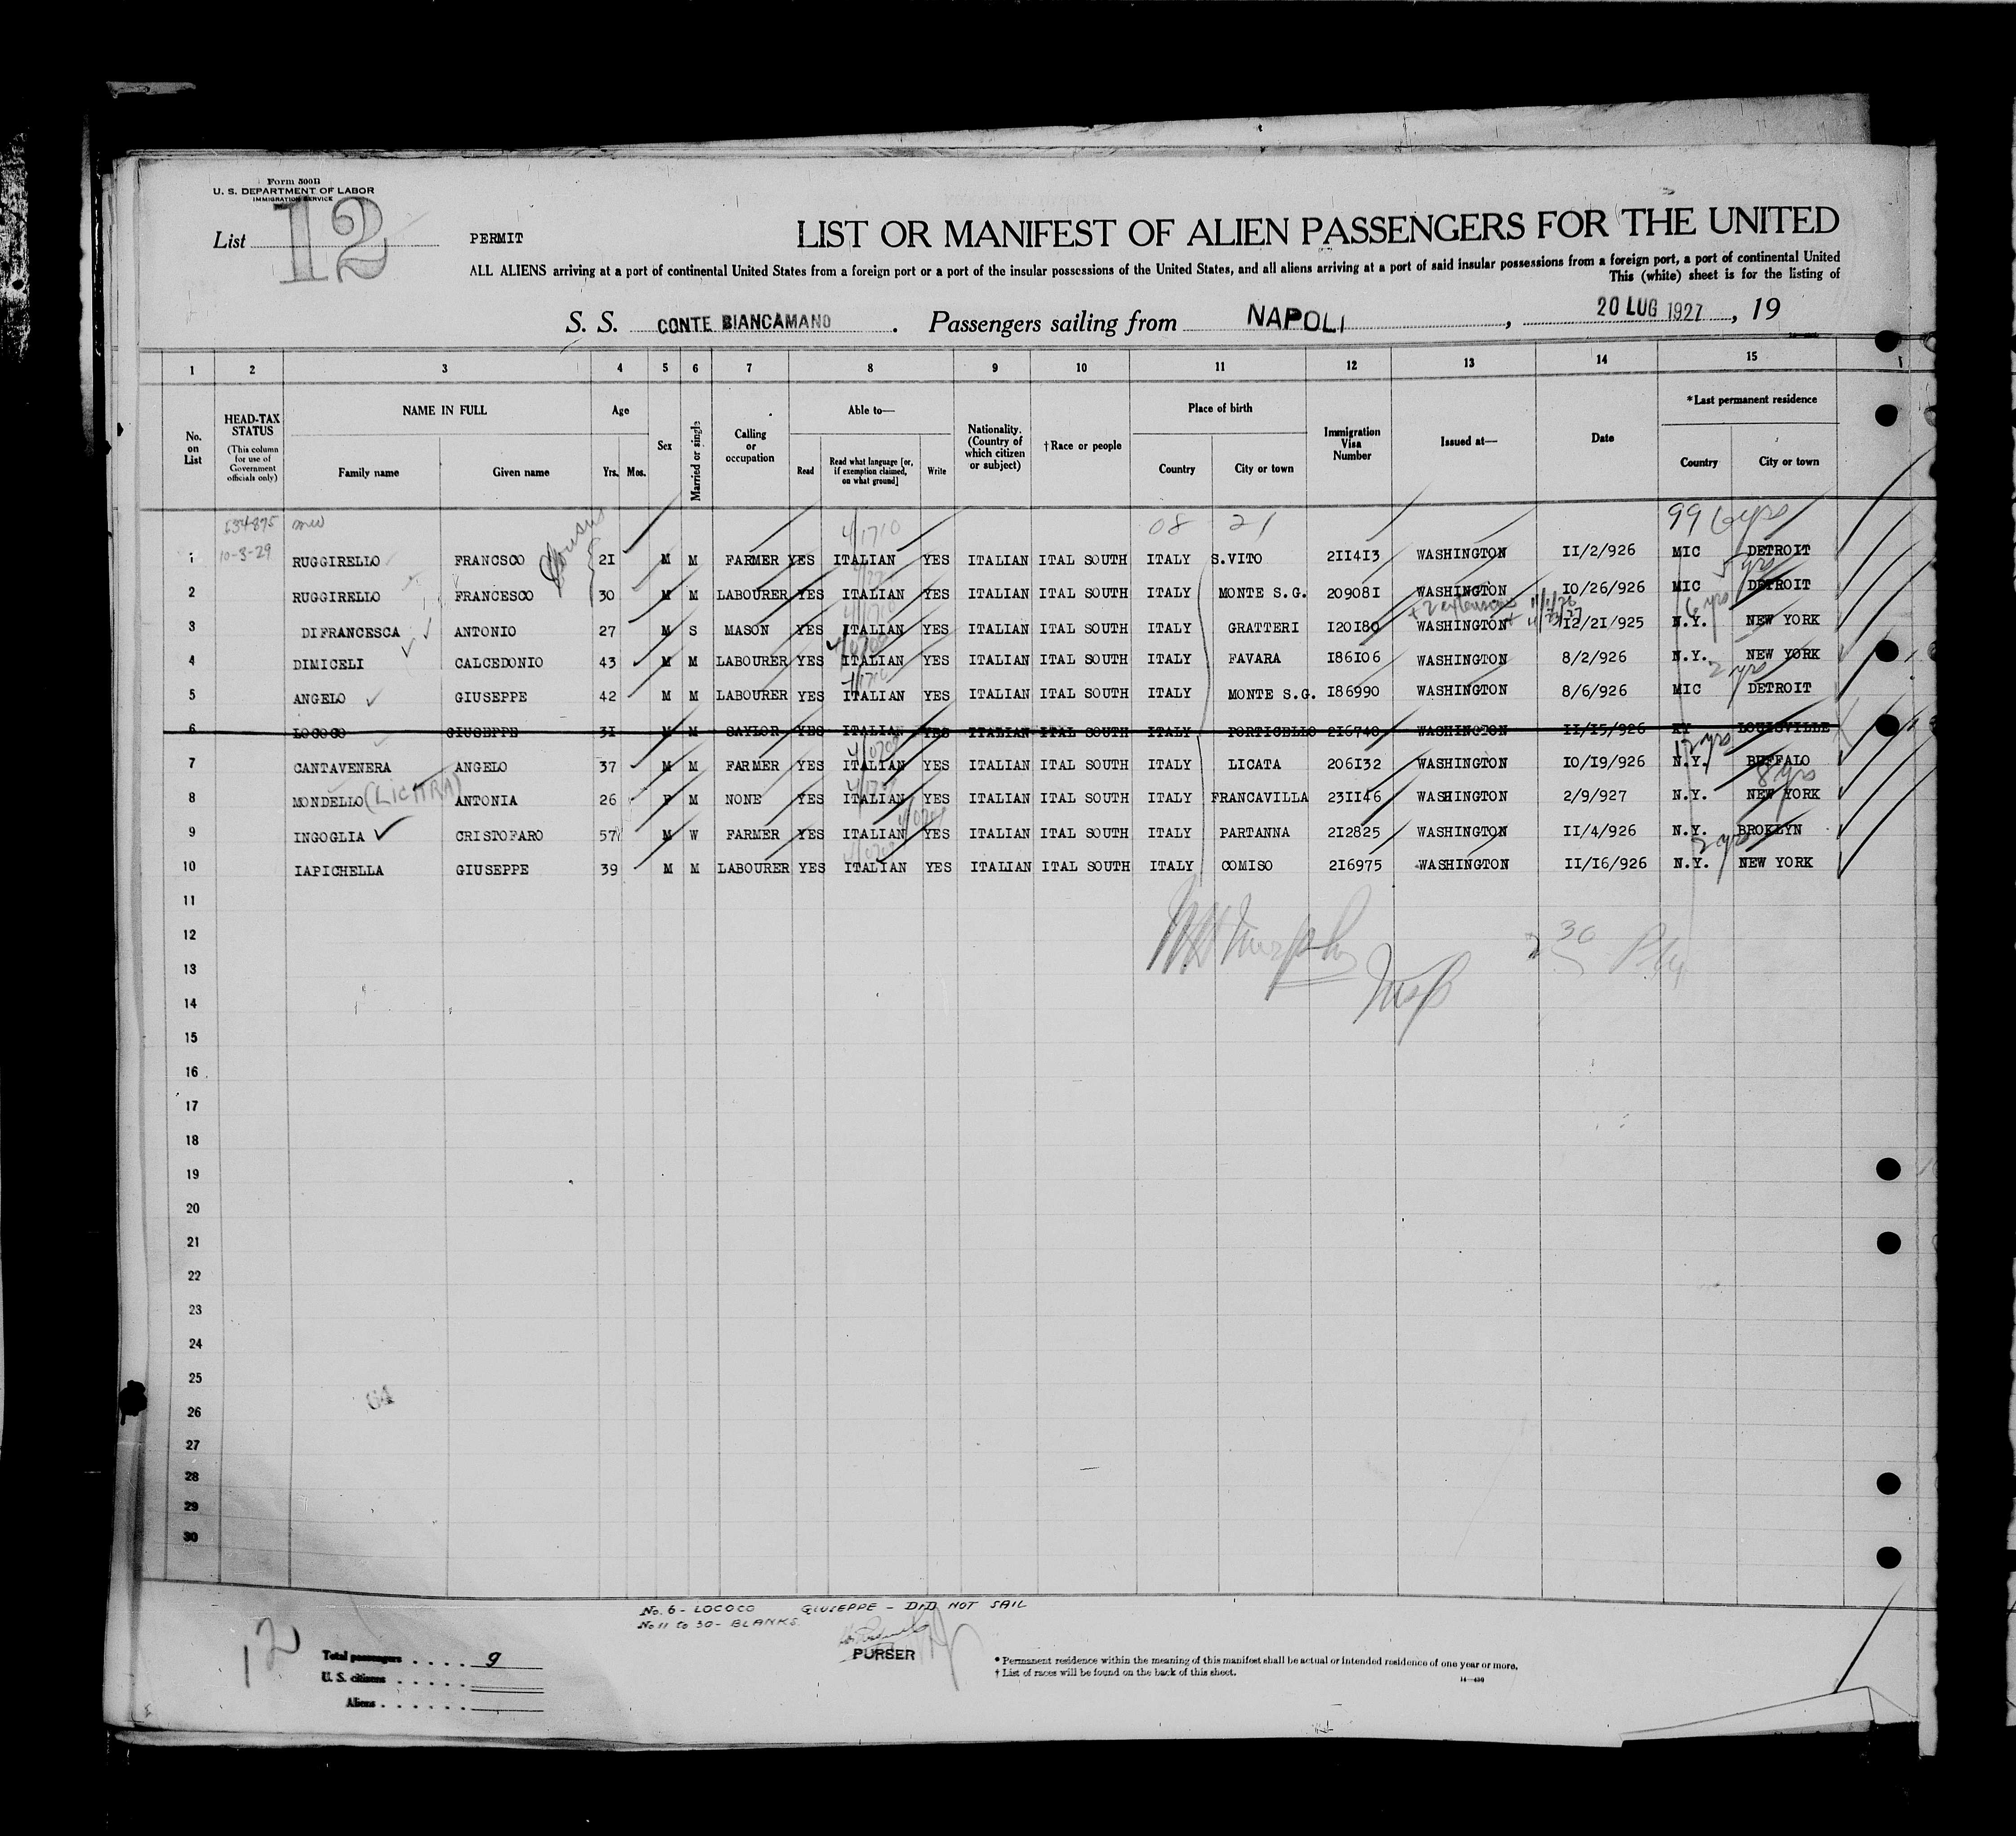 Form 500B
U. S. DEPARTMENT OF LABOR
IMMIGRATION SERVICE
List 12
PERMIT
LIST OR MANIFEST OF ALIEN PASSENGERS FOR THE UNITED
ALL ALIENS arriving at a port of continental United States from a foreign port or a port of the insular possessions of the United States, and all aliens arriving at a port of said insular possessions from a foreign port, a port of continental United
This (white) sheet is for the listing of
S. S. CONTE BIANCAMANO . Passengers sailing from NAPOLI , 20 LUG 1927 , 19
1 2 3 4 5 6 7 8 9 10 11 12 13 14 15
No. on List HEAD-TAX STATUS (This column for use of Government officials only) NAME IN FULL Family name Given name Age Yrs. Mos. Sex Married or single Calling or occupation Able to— Read Read what language [or, if exemption claimed, on what ground] Write Nationality. (Country of which citizen or subject) †Race or people Place of birth Country City or town Immigration Visa Number Issued at— Date *Last permanent residence Country City or town
634875 4/1710 08 21 99 6 yrs
10-3-29
1 RUGGIRELLO FRANCSCO cousins 21 M M FARMER YES ITALIAN YES ITALIAN ITAL SOUTH ITALY S.VITO 211413 WASHINGTON 11/2/926 MIC DETROIT
5 yrs
2 RUGGIRELLO FRANCESCO 30 M M LABOURER YES ITALIAN YES ITALIAN ITAL SOUTH ITALY MONTE S.G. 209081 WASHINGTON 10/26/926 MIC DETROIT
+ 2 extensions 6 yrs
3 DIFRANCESCA ANTONIO 27 M S MASON YES ITALIAN YES ITALIAN ITAL SOUTH ITALY GRATTERI 120180 WASHINGTON 12/21/925 N.Y. NEW YORK
4 DIMICELI CALCEDONIO 43 M M LABOURER YES ITALIAN YES ITALIAN ITAL SOUTH ITALY FAVARA 186106 WASHINGTON 8/2/926 N.Y. NEW YORK
2 yrs
5 ANGELO GIUSEPPE 42 M M LABOURER YES ITALIAN YES ITALIAN ITAL SOUTH ITALY MONTE S.G. 186990 WASHINGTON 8/6/926 MIC DETROIT
6 LOCOCO GIUSEPPE 31 M M SAYLOR YES ITALIAN YES ITALIAN ITAL SOUTH ITALY PORTICELLO 216740 WASHINGTON 11/15/926 KY LOUISVILLE
7 CANTAVENERA ANGELO 37 M M FARMER YES ITALIAN YES ITALIAN ITAL SOUTH ITALY LICATA 206132 WASHINGTON 10/19/926 N.Y. BUFFALO
8 yrs
8 MONDELLO (LICITRA) ANTONIA 26 F M NONE YES ITALIAN YES ITALIAN ITAL SOUTH ITALY FRANCAVILLA 231146 WASHINGTON 2/9/927 N.Y. NEW YORK
9 INGOGLIA CRISTOFARO 57 M W FARMER YES ITALIAN YES ITALIAN ITAL SOUTH ITALY PARTANNA 212825 WASHINGTON 11/4/926 N.Y. BROKLYN
2 yrs
10 IAPICHELLA GIUSEPPE 39 M M LABOURER YES ITALIAN YES ITALIAN ITAL SOUTH ITALY COMISO 216975 WASHINGTON 11/16/926 N.Y. NEW YORK
11
12 Murphy 30
13 Insp
14
15
16
17
18
19
20
21
22
23
24
25
26
27
28
29
30
No. 6 - LOCOCO GIUSEPPE - DID NOT SAIL
No 11 to 30 - BLANKS
12
PURSER
Total passengers . . . . 9
U. S. citizens . . . . .
Aliens . . . . . .
* Permanent residence within the meaning of this manifest shall be actual or intended residence of one year or more.
† List of races will be found on the back of this sheet.